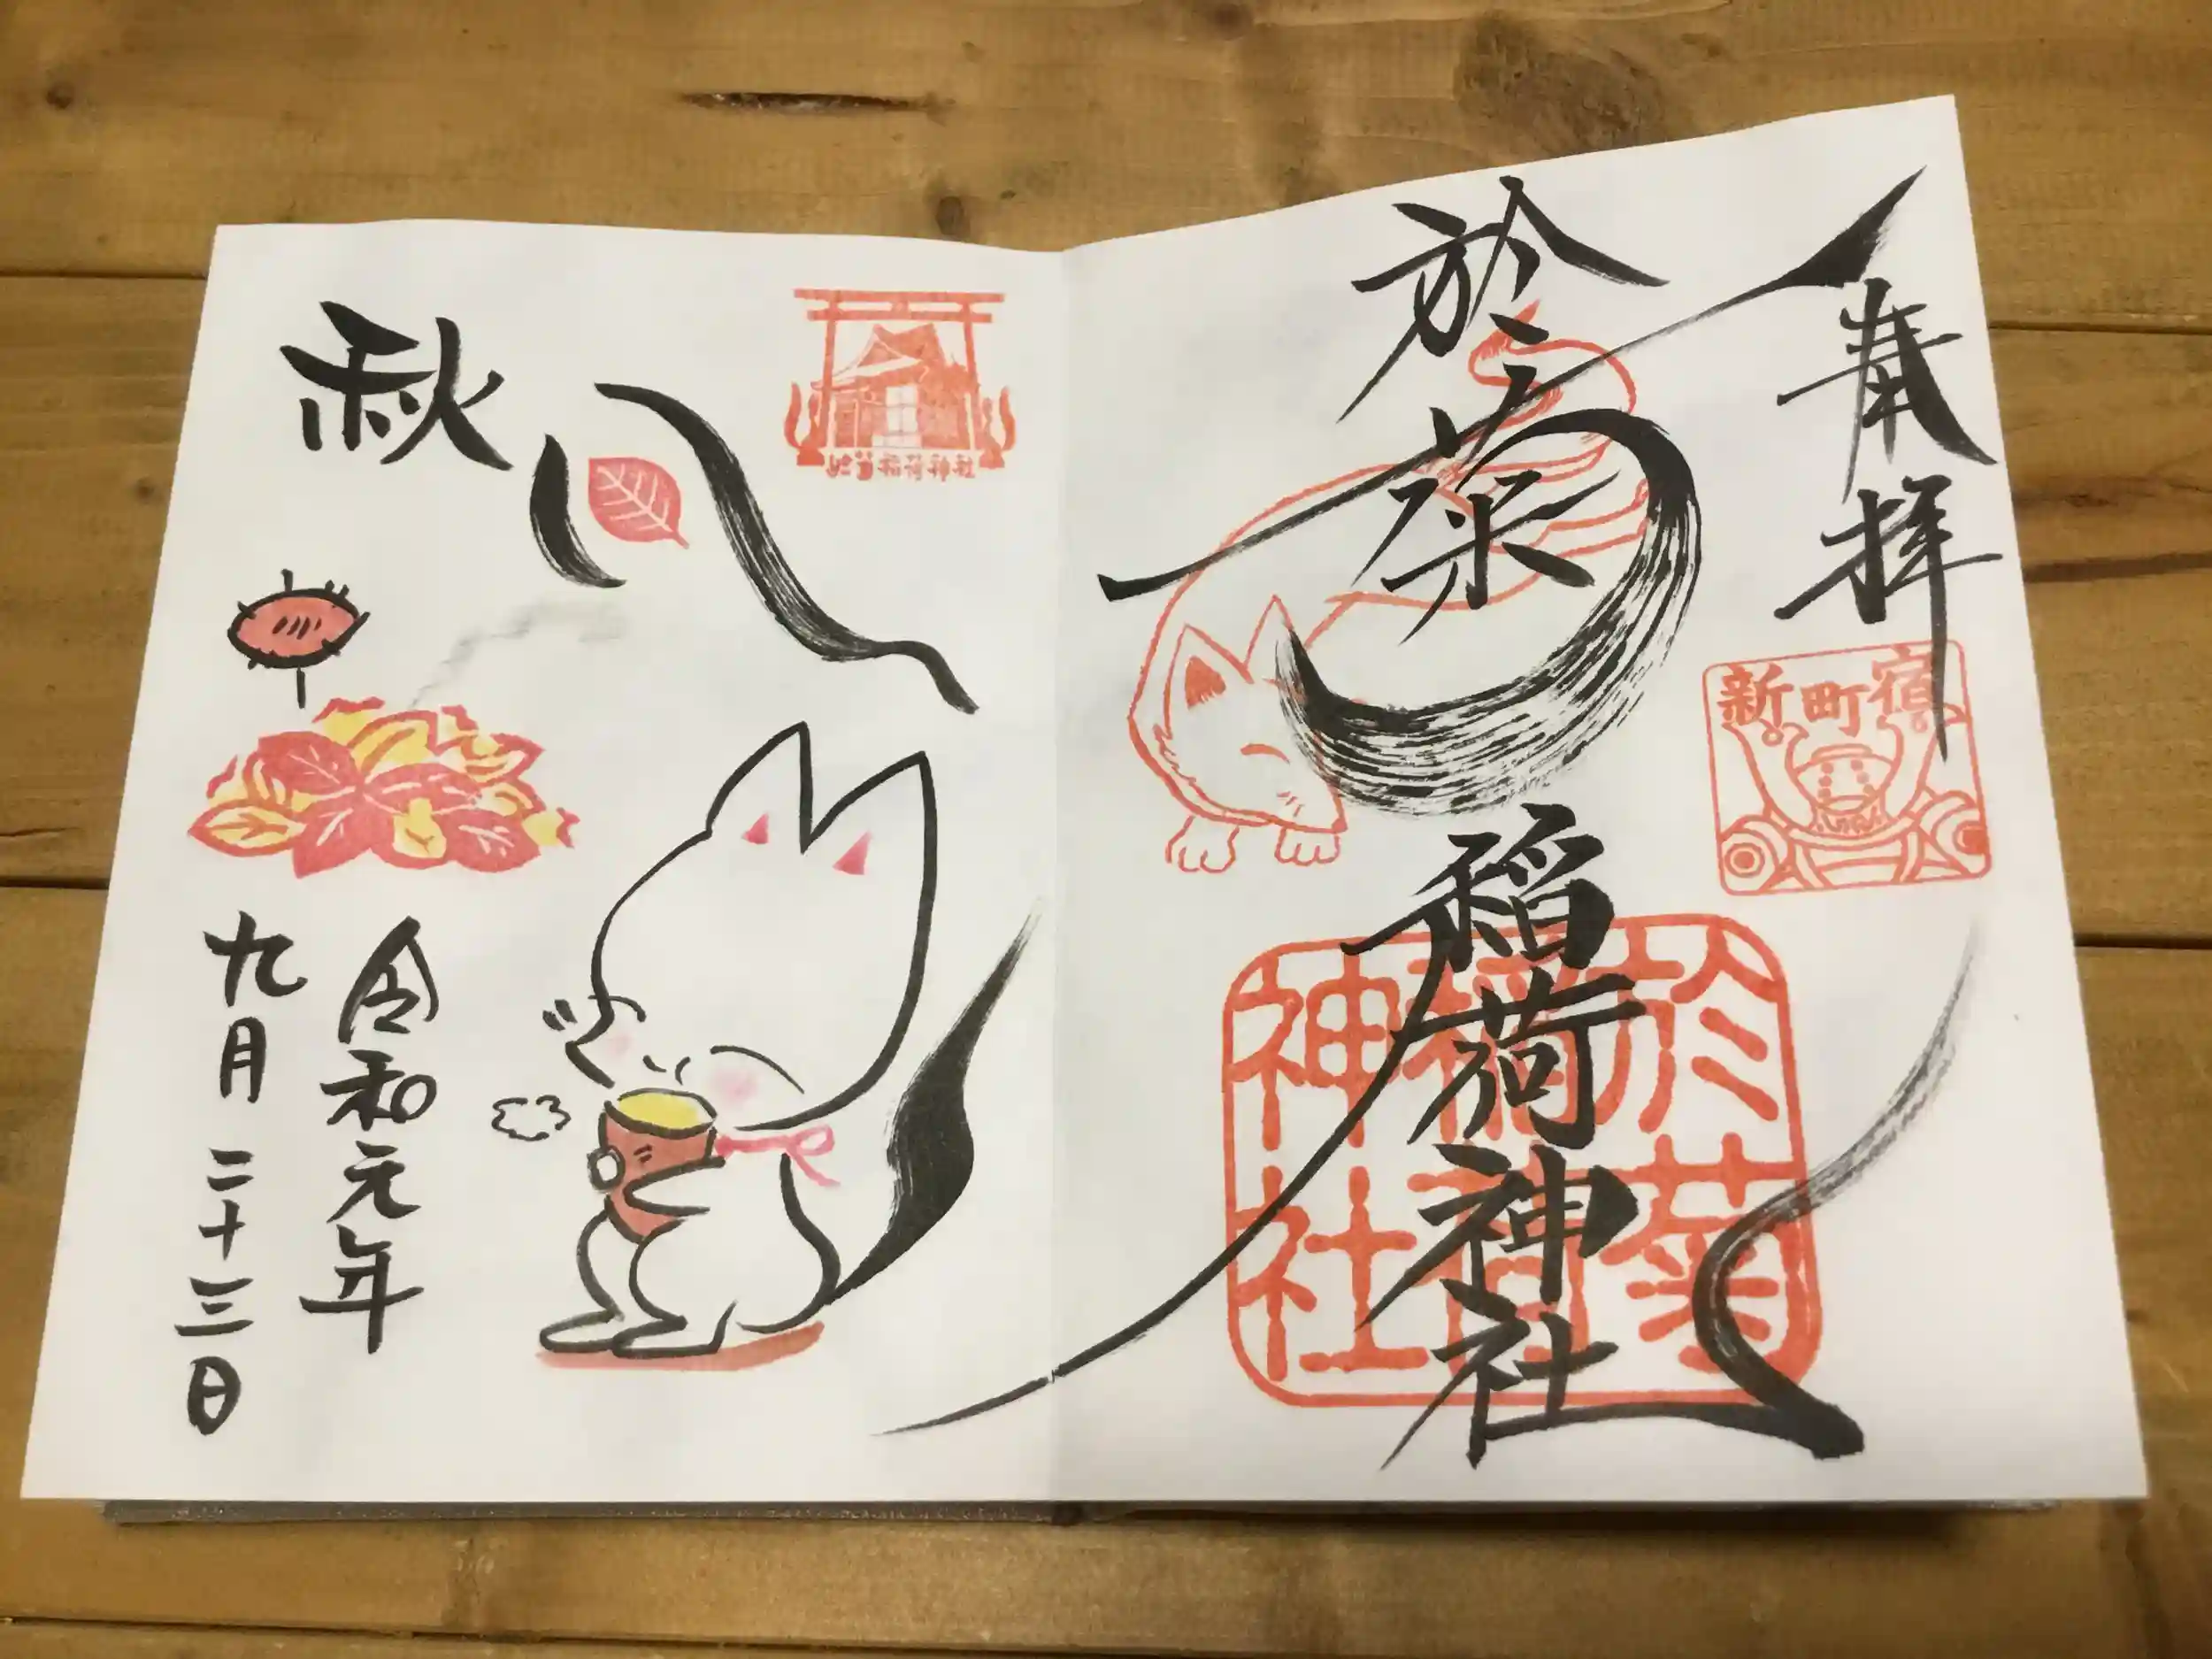 奉拝
於菊
稲荷神社
新町宿
於菊
稲荷
神社
於菊稲荷神社
秋
令和元年
九月二十三日